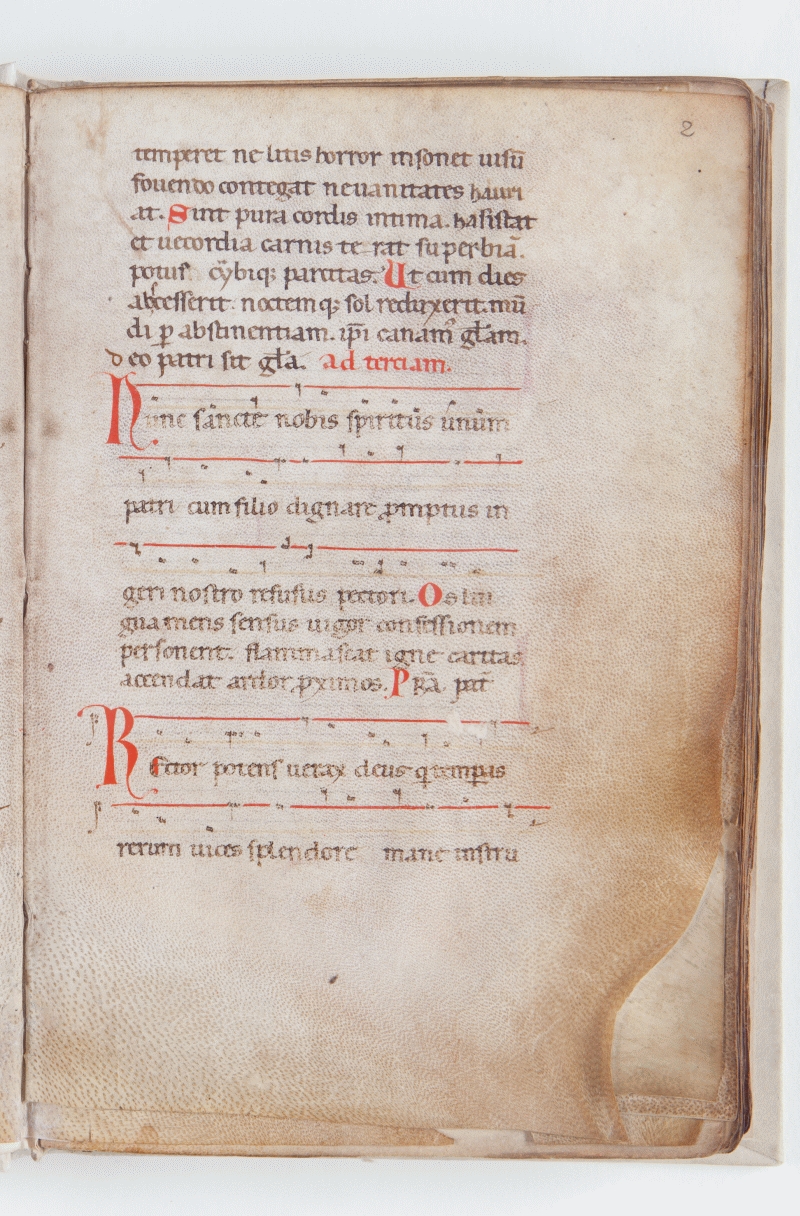 2
temperet ne litis horror insonet uisū
fouendo contegat ne uanitates hauri
at. Sint pura cordis intima. habsistat
et uecordia carnis te rat superbiā.
potus cÿbiq; parcitas. Ut cum dies
abcesserit. noctemq; sol reduxerit. mū
di ꝑ abstinentiam. ip̄i canam̄ gl̄am.
deo patri sit gl̄a. ad terciam.
Nunc sancte nobis spiritus unum
patri cum filio dignare ꝓmptus in
geri nostro refusus pectori. Os lin
gua mens sensus uigor confessionem
personent. flammascat igne caritas
accendat ardor ꝓximos. P̲ra. pat̄
Rector potens uerax deus q̇ temꝑas
rerum uices splendore mane instru